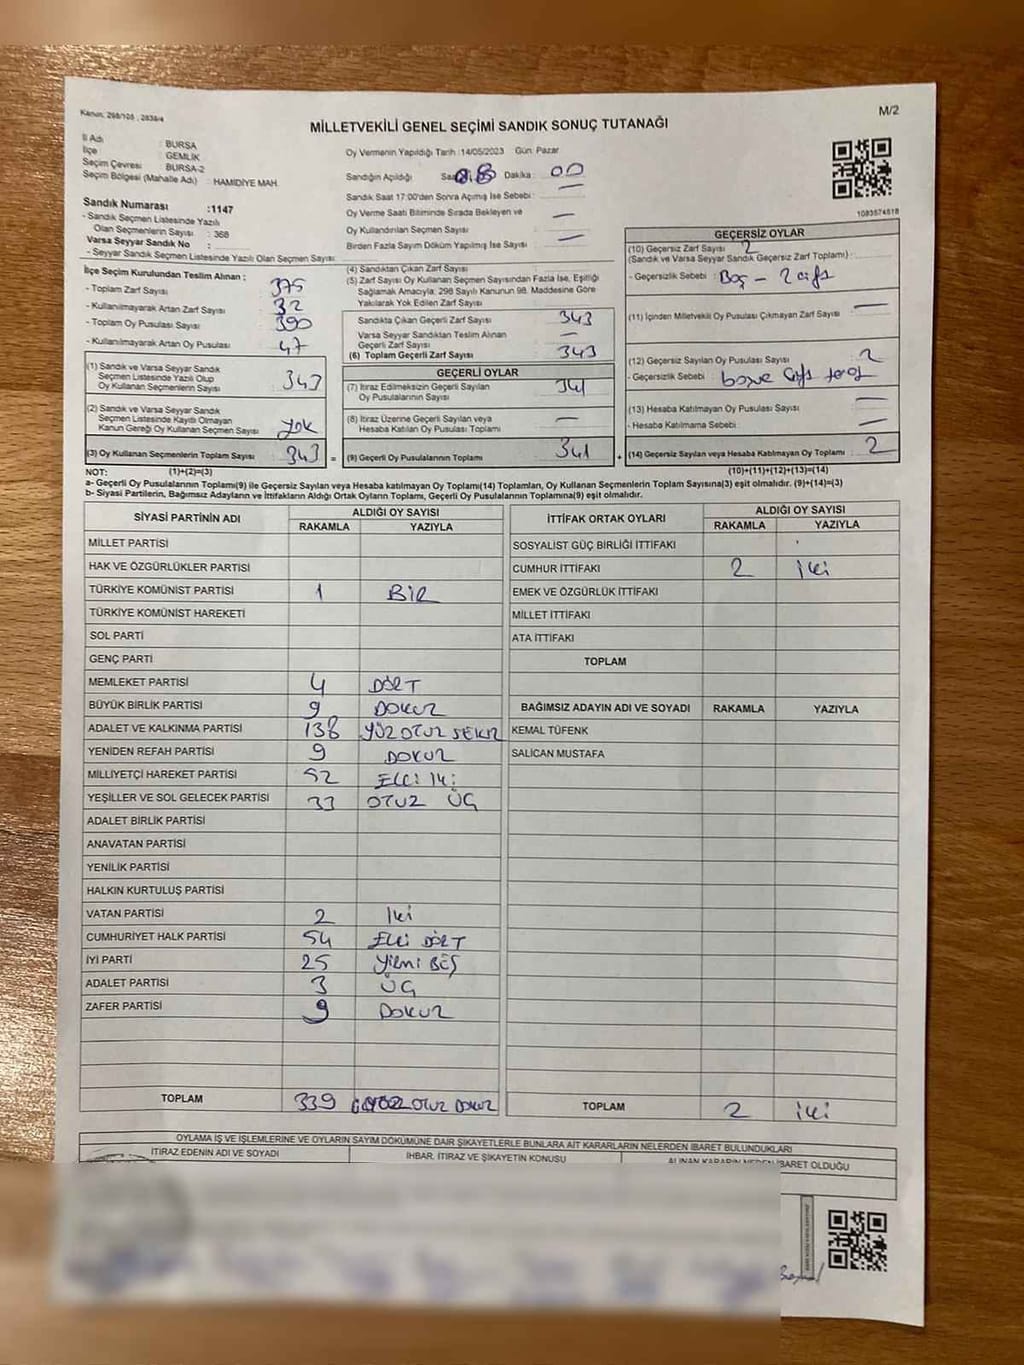 Kanun, 298/105 , 2839/4
M/2
MİLLETVEKİLİ GENEL SEÇİMİ SANDIK SONUÇ TUTANAĞI
İl Adı : BURSA
İlçe : GEMLİK
Seçim Çevresi : BURSA-2
Seçim Bölgesi (Mahalle Adı) : HAMİDİYE MAH.
Sandık Numarası :1147
- Sandık Seçmen Listesinde Yazılı
Olan Seçmenlerin Sayısı : 368
Varsa Seyyar Sandık No :
- Seyyar Sandık Seçmen Listesinde Yazılı Olan Seçmen Sayısı :
Oy Vermenin Yapıldığı Tarih :14/05/2023 Gün: Pazar
Sandığın Açıldığı Saat: 08 Dakika : 00
Sandık Saat 17:00'den Sonra Açımış İse Sebebi : —
Oy Verme Saati Bitiminde Sırada Bekleyen ve
Oy Kullandırılan Seçmen Sayısı —
Birden Fazla Sayım Döküm Yapılmış İse Sayısı —
1083574818
İlçe Seçim Kurulundan Teslim Alınan :
- Toplam Zarf Sayısı 375
- Kullanılmayarak Artan Zarf Sayısı 32
- Toplam Oy Pusulası Sayısı 390
- Kullanılmayarak Artan Oy Pusulası 47
(1) Sandık ve Varsa Seyyar Sandık
Seçmen Listesinde Yazılı Olup
Oy Kullanan Seçmenlerin Sayısı 343
(2) Sandık ve Varsa Seyyar Sandık
Seçmen Listesinde Kayıtlı Olmayan
Kanun Gereği Oy Kullanan Seçmen Sayısı Yok
(3) Oy Kullanan Seçmenlerin Toplam Sayısı 343 =
(4) Sandıktan Çıkan Zarf Sayısı
(5) Zarf Sayısı Oy Kullanan Seçmen Sayısından Fazla İse, Eşitliği
Sağlamak Amacıyla, 298 Sayılı Kanunun 98. Maddesine Göre
Yakılarak Yok Edilen Zarf Sayısı
Sandıkta Çıkan Geçerli Zarf Sayısı 343
Varsa Seyyar Sandıktan Teslim Alınan
Geçerli Zarf Sayısı —
(6) Toplam Geçerli Zarf Sayısı 343
GEÇERLİ OYLAR
(7) İtiraz Edilmeksizin Geçerli Sayılan
Oy Pusulalarının Sayısı 341
(8) İtiraz Üzerine Geçerli Sayılan veya
Hesaba Katılan Oy Pusulası Toplamı —
(9) Geçerli Oy Pusulalarının Toplamı 341 +
GEÇERSİZ OYLAR
(10) Geçersiz Zarf Sayısı 2
(Sandık ve Varsa Seyyar Sandık Geçersiz Zarf Toplamı) :
- Geçersizlik Sebebi : Boş - 2 çift
(11) İçinden Milletvekili Oy Pusulası Çıkmayan Zarf Sayısı —
(12) Geçersiz Sayılan Oy Pusulası Sayısı 2
- Geçersizlik Sebebi
(13) Hesaba Katılmayan Oy Pusulası Sayısı —
- Hesaba Katılmama Sebebi : —
(14) Geçersiz Sayılan veya Hesaba Katılmayan Oy Toplamı 2
NOT: (1)+(2)=(3) (10)+(11)+(12)+(13)=(14)
a- Geçerli Oy Pusulalarının Toplamı(9) ile Geçersiz Sayılan veya Hesaba Katılmayan Oy Toplamı(14) Toplamları, Oy Kullanan Seçmenlerin Toplam Sayısına(3) eşit olmalıdır. (9)+(14)=(3)
b- Siyasi Partilerin, Bağımsız Adayların ve İttifakların Aldığı Ortak Oyların Toplamı, Geçerli Oy Pusulalarının Toplamına(9) eşit olmalıdır.
SİYASİ PARTİNİN ADI ALDIĞI OY SAYISI
RAKAMLA YAZIYLA
MİLLET PARTİSİ
HAK VE ÖZGÜRLÜKLER PARTİSİ
TÜRKİYE KOMÜNİST PARTİSİ 1 BİR
TÜRKİYE KOMÜNİST HAREKETİ
SOL PARTİ
GENÇ PARTİ
MEMLEKET PARTİSİ 4 DÖRT
BÜYÜK BİRLİK PARTİSİ 9 DOKUZ
ADALET VE KALKINMA PARTİSİ 138 YÜZ OTUZ SEKİZ
YENİDEN REFAH PARTİSİ 9 DOKUZ
MİLLİYETÇİ HAREKET PARTİSİ 52 ELLİ İKİ
YEŞİLLER VE SOL GELECEK PARTİSİ 33 OTUZ ÜÇ
ADALET BİRLİK PARTİSİ
ANAVATAN PARTİSİ
YENİLİK PARTİSİ
HALKIN KURTULUŞ PARTİSİ
VATAN PARTİSİ 2 İki
CUMHURİYET HALK PARTİSİ 54 ELLİ DÖRT
İYİ PARTİ 25 YİRMİ BEŞ
ADALET PARTİSİ 3 ÜÇ
ZAFER PARTİSİ 9 DOKUZ
TOPLAM 339 ÜÇYÜZ OTUZ DOKUZ
İTTİFAK ORTAK OYLARI ALDIĞI OY SAYISI
RAKAMLA YAZIYLA
SOSYALİST GÜÇ BİRLİĞİ İTTİFAKI
CUMHUR İTTİFAKI 2 İki
EMEK VE ÖZGÜRLÜK İTTİFAKI
MİLLET İTTİFAKI
ATA İTTİFAKI
TOPLAM
BAĞIMSIZ ADAYIN ADI VE SOYADI RAKAMLA YAZIYLA
KEMAL TÜFENK
SALİCAN MUSTAFA
TOPLAM 2 İki
OYLAMA İŞ VE İŞLEMLERİNE VE OYLARIN SAYIM DÖKÜMÜNE DAİR ŞİKAYETLERLE BUNLARA AİT KARARLARIN NELERDEN İBARET BULUNDUKLARI
İTİRAZ EDENİN ADI VE SOYADI İHBAR, İTİRAZ VE ŞİKAYETİN KONUSU ALINAN KARARIN NEDEN İBARET OLDUĞU